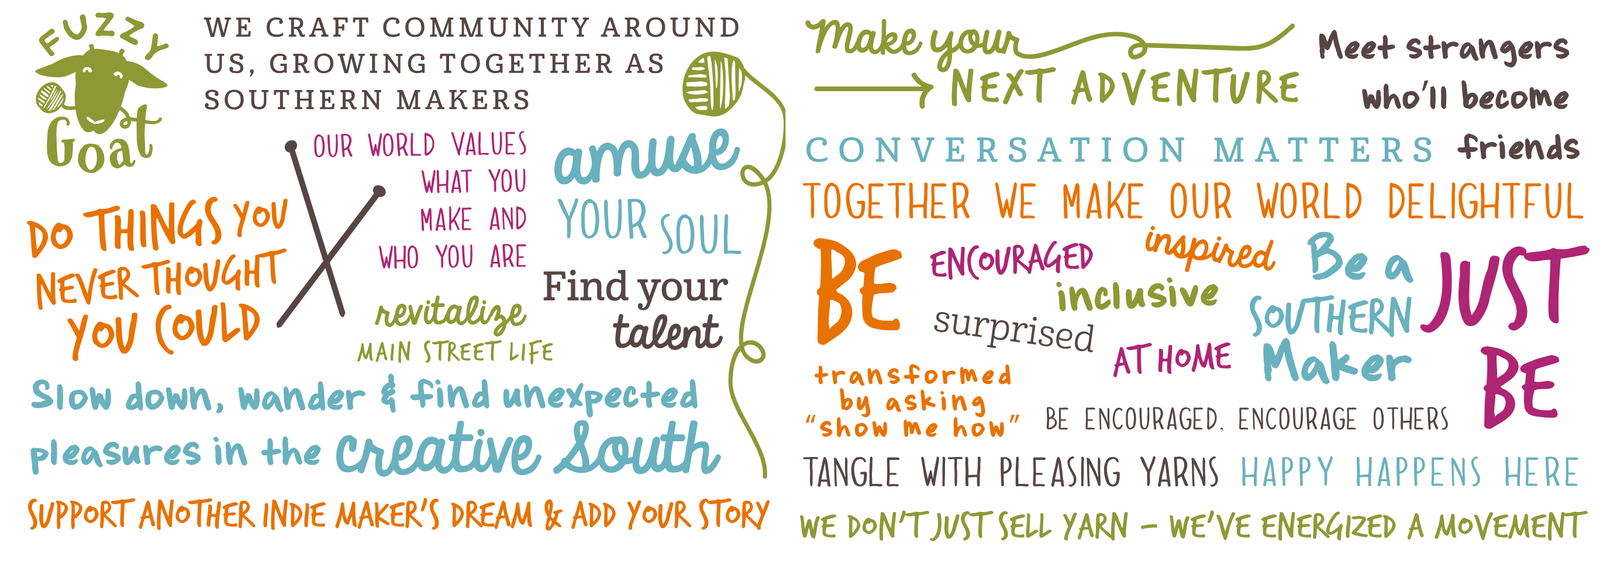 FUZZY
Goat
WE CRAFT COMMUNITY AROUND
US, GROWING TOGETHER AS
SOUTHERN MAKERS
OUR WORLD VALUES
WHAT YOU
MAKE AND
WHO YOU ARE
amuse
YOUR SOUL
DO THINGS YOU
NEVER THOUGHT
YOU COULD
Find your
talent
revitalize
MAIN STREET LIFE
Slow down, wander & find unexpected
pleasures in the creative South
SUPPORT ANOTHER INDIE MAKER'S DREAM & ADD YOUR STORY
Make your
NEXT ADVENTURE
Meet strangers
who'll become
friends
CONVERSATION MATTERS
TOGETHER WE MAKE OUR WORLD DELIGHTFUL
BE
ENCOURAGED
inspired
inclusive
surprised
AT HOME
Be a
SOUTHERN
Maker
JUST
BE
transformed
by asking
"show me how"
BE ENCOURAGED, ENCOURAGE OTHERS
TANGLE WITH PLEASING YARNS HAPPY HAPPENS HERE
WE DON'T JUST SELL YARN – WE'VE ENERGIZED A MOVEMENT